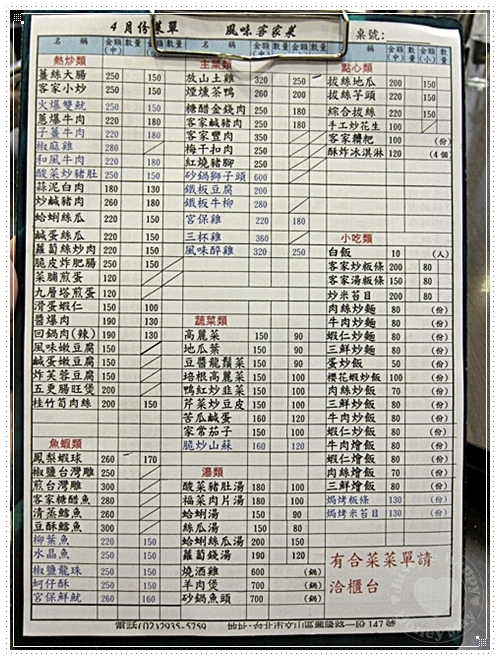 4 月份菜單 風味客家菜 桌號:
名 稱 金額(中) 數量 金額(小) 數量
熱炒類
薑絲大腸 250 150
客家小炒 250 150
火爆雙魷 250 150
蔥爆牛肉 220 180
子薑牛肉 220 180
椒麻雞 280
和風牛肉 220 180
酸菜炒豬肚 250 150
蒜泥白肉 180 130
炒鹹豬肉 260 180
蛤蜊絲瓜 220 150
鹹蛋絲瓜 220 150
蘿蔔絲炒肉 220 150
脆皮炸肥腸 250 150
菜脯煎蛋 120
九層塔煎蛋 120
滑蛋蝦仁 150 100
醬爆肉 190 130
回鍋肉(辣) 190 130
風味嫩豆腐 150
鹹蛋嫩豆腐 150
炸芙蓉豆腐 150
五更腸旺煲 200
桂竹筍肉絲 200 150
魚蝦類
鳳梨蝦球 260 170
椒鹽台灣雕 250
煎台灣雕 300
客家糖醋魚 280
清蒸鱈魚 260
豆酥鱈魚 300
柳葉魚 220 150
水晶魚 250 150
椒鹽龍珠 250 150
蚵仔酥 250 150
宮保鮮魷 260 160
主菜類
放山土雞 320 250
煙燻茶鴨 260 200
糖醋金錢肉 250 180
客家鹹豬肉 250 180
客家豐肉 350
梅干扣肉 250
紅燒豬腳 250
砂鍋獅子頭 600
鐵板豆腐 200
鐵板牛柳 280
宮保雞 220 180
三杯雞 360
風味醉雞 320 250
蔬菜類
高麗菜 150 90
地瓜葉 150 90
豆醬龍鬚菜 150 90
培根高麗菜 150 100
鴨紅炒韭菜 150 100
芹菜炒豆皮 150 100
苦瓜鹹蛋 160 120
家常茄子 150 100
脆炒山蘇 160 120
湯類
酸菜豬肚湯 180 100
福菜肉片湯 180 100
蛤蜊湯 150 90
絲瓜湯 150 80
蛤蜊絲瓜湯 200 150
蘿蔔錢湯 190 120
燒酒雞 600 (鍋)
羊肉煲 700 (鍋)
砂鍋魚頭 700 (鍋)
點心類
拔絲地瓜 200 150
拔絲芋頭 220 150
綜合拔絲 220 150
手工炒花生 100
客家糍粑 100 (份)
酥炸冰淇淋 120 (4個
小吃類
白飯 10 (人)
客家炒粄條 200 80
客家湯粄條 150 80
炒米苔目 200 80
肉絲炒麵 80 (份)
牛肉炒麵 80 (份)
蝦仁炒麵 80 (份)
三鮮炒麵 80 (份)
蛋炒飯 50 (份)
櫻花蝦炒飯 100 (份)
肉絲炒飯 70 (份)
三鮮炒飯 80 (份)
蝦仁炒飯 80 (份)
牛肉炒飯 80 (份)
牛肉燴飯 80 (份)
蝦仁燴飯 80 (份)
肉絲燴飯 70 (份)
三鮮燴飯 80 (份)
焗烤粄條 130 (份)
焗烤米苔目 130 (份)
有合菜菜單請
洽櫃台
電話(02)2935-5759 地址:台北市文山區興隆路一段147號